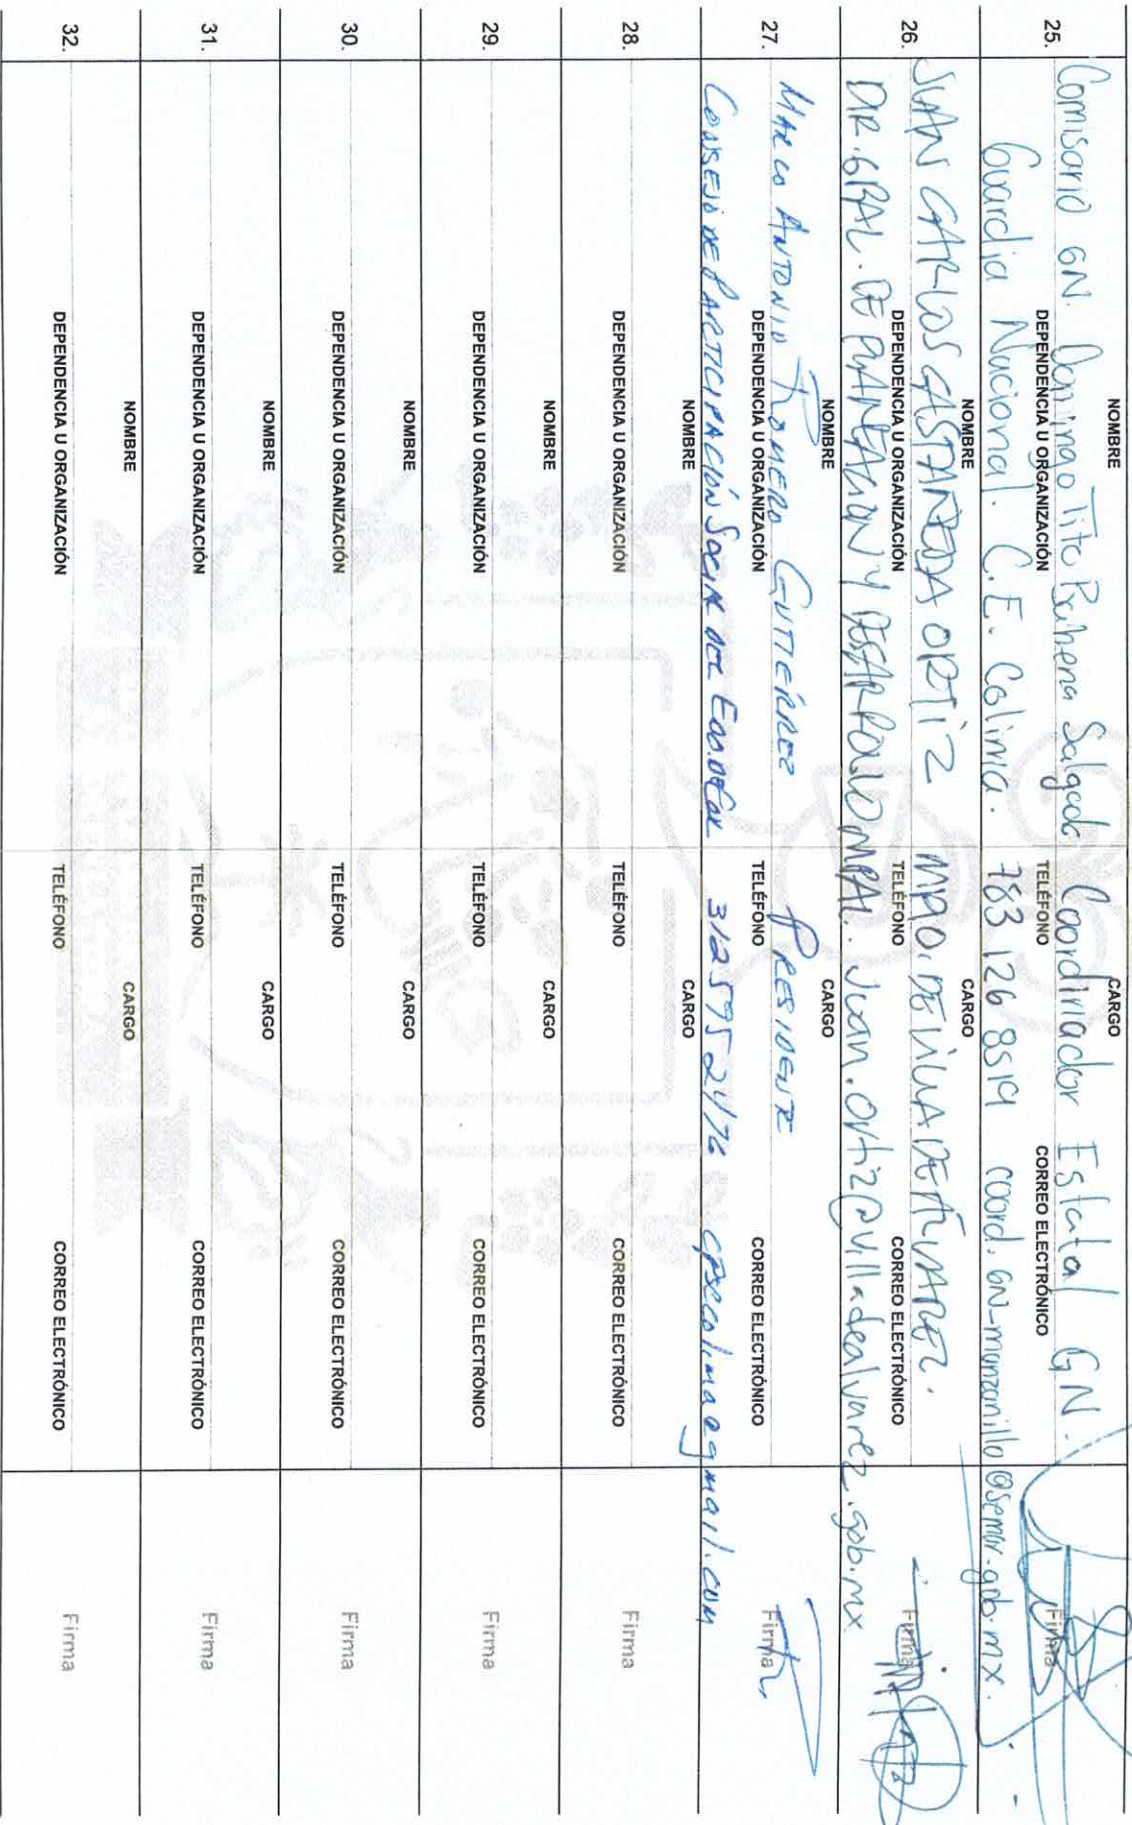 25.
Comisario GN. Domingo Tito Bahena Salgado
Coordinador Estatal GN.
NOMBRE
CARGO
Guardia Nacional. C.E. Colima.
783 126 8519
coord.GN_manzanillo@semar.gob.mx.
DEPENDENCIA U ORGANIZACIÓN
TELÉFONO
CORREO ELECTRÓNICO
Firma
26.
JUAN CARLOS CASTAÑEDA ORTIZ
MPIO. DE VILLA DE ÁLVAREZ.
NOMBRE
CARGO
DIR. GRAL. DE PLANEACION Y DESARROLLO MPAL.
juan.ortiz@villadealvarez.gob.mx
DEPENDENCIA U ORGANIZACIÓN
TELÉFONO
CORREO ELECTRÓNICO
Firma
27.
MARCO ANTONIO ROMERO GUTIÉRREZ
PRESIDENTE
NOMBRE
CARGO
CONSEJO DE PARTICIPACIÓN SOCIAL DEL EDO. DE COL
312 595 2476
cpsccolima@gmail.com
DEPENDENCIA U ORGANIZACIÓN
TELÉFONO
CORREO ELECTRÓNICO
Firma
28.
NOMBRE
CARGO
DEPENDENCIA U ORGANIZACIÓN
TELÉFONO
CORREO ELECTRÓNICO
Firma
29.
NOMBRE
CARGO
DEPENDENCIA U ORGANIZACIÓN
TELÉFONO
CORREO ELECTRÓNICO
Firma
30.
NOMBRE
CARGO
DEPENDENCIA U ORGANIZACIÓN
TELÉFONO
CORREO ELECTRÓNICO
Firma
31.
NOMBRE
CARGO
DEPENDENCIA U ORGANIZACIÓN
TELÉFONO
CORREO ELECTRÓNICO
Firma
32.
NOMBRE
CARGO
DEPENDENCIA U ORGANIZACIÓN
TELÉFONO
CORREO ELECTRÓNICO
Firma